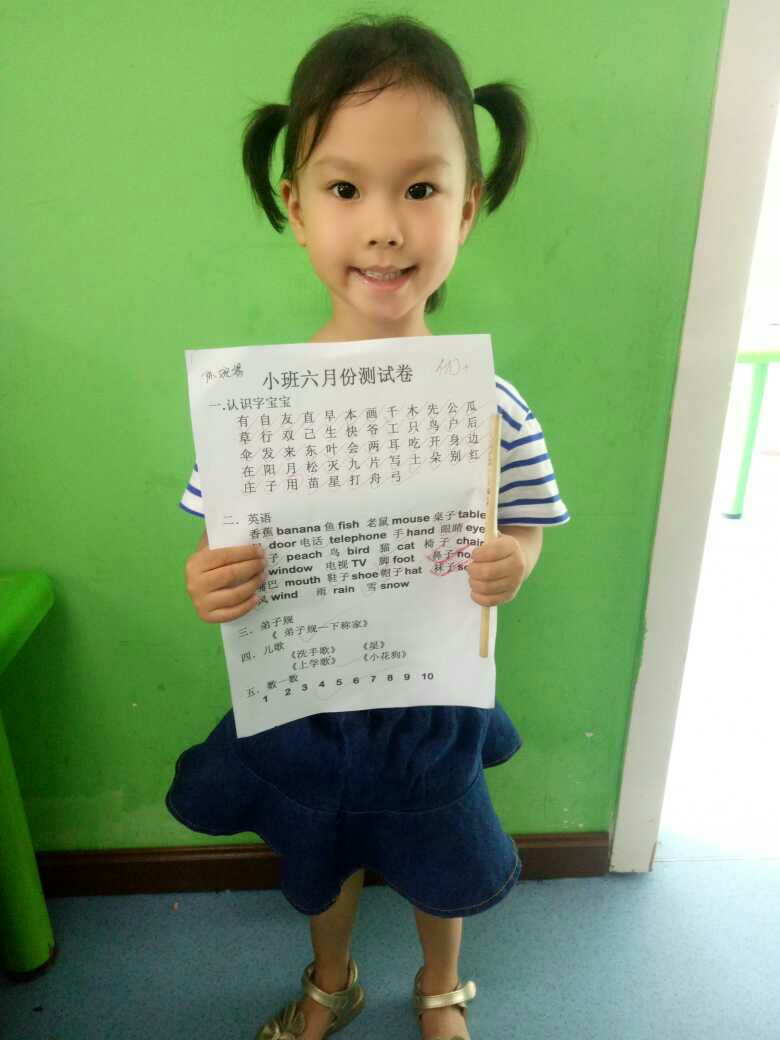 小班六月份测试卷
100+
一.认识字宝宝
有 自 友 直 早 本 画 千 木 先 公 瓜
草 行 双 己 生 快 爷 工 只 鸟 户 后
伞 发 来 东 叶 会 两 耳 吃 开 身 边
在 阳 月 松 灭 九 片 写 土 朵 别 红
庄 子 用 苗 星 打 舟 弓
二．英语
香蕉 banana 鱼 fish 老鼠 mouse 桌子 table
door 电话 telephone 手 hand 眼睛 eye
子 peach 鸟 bird 猫 cat 椅子 chair
window 电视 TV 脚 foot 鼻子
嘴巴 mouth 鞋子 shoe 帽子 hat 袜子
风 wind 雨 rain 雪 snow
三．弟子规
《 弟子规一下称家》
四．儿歌 《洗手歌》 《星》
《上学歌》 《小花狗》
五．数一数
1 2 3 4 5 6 7 8 9 10